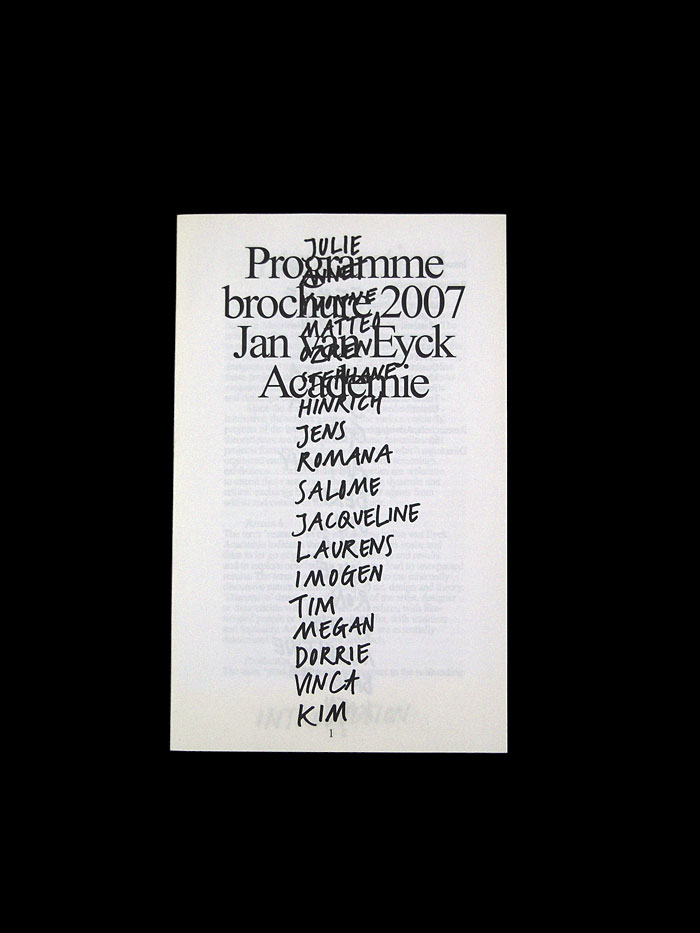 Programme
brochure 2007
Jan van Eyck
Academie
JULIE
ANNET
YVONNE
MATTEO
OZREN
STEPHANE
HINRICH
JENS
ROMANA
SALOME
JACQUELINE
LAURENS
IMOGEN
TIM
MEGAN
DORRIE
VINCA
KIM
1